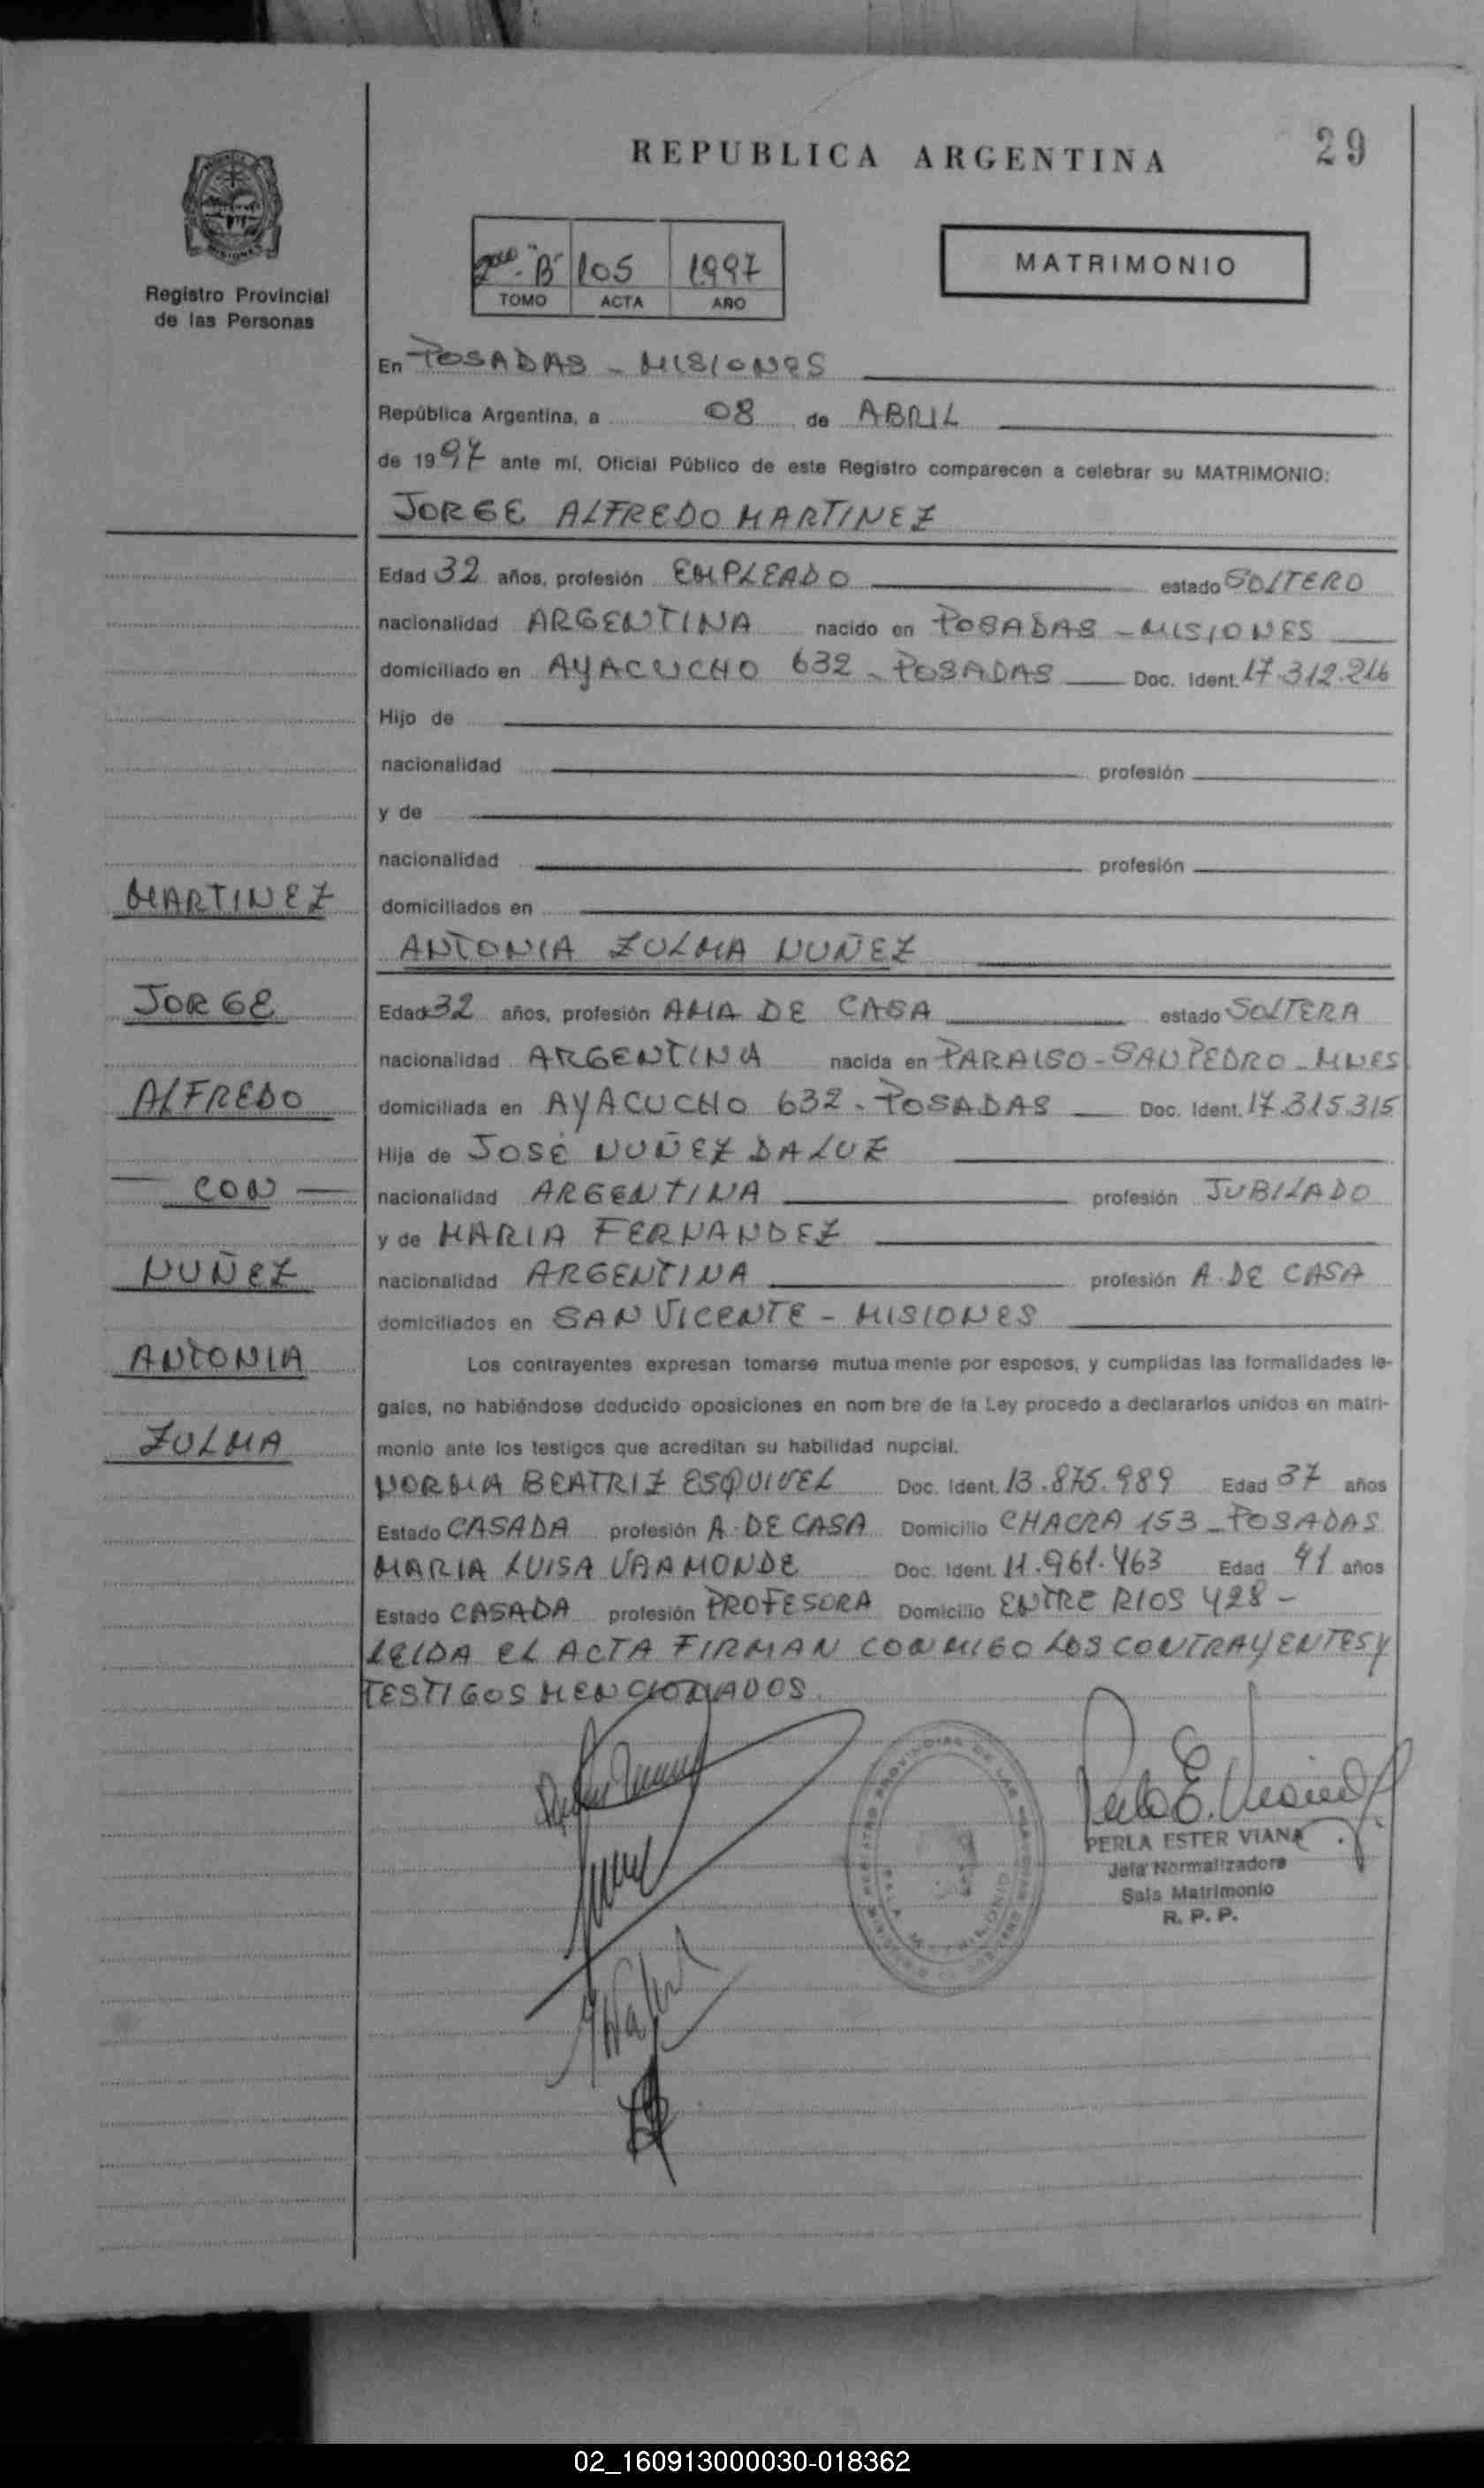 REPUBLICA ARGENTINA
29
MISIONES
Registro Provincial
de las Personas
2do "B" 105 1997
TOMO ACTA AÑO
MATRIMONIO
En POSADAS - MISIONES
República Argentina, a 08 de ABRIL
de 1997 ante mí, Oficial Público de este Registro comparecen a celebrar su MATRIMONIO:
JORGE ALFREDO MARTINEZ
Edad 32 años, profesión EMPLEADO estado SOLTERO
nacionalidad ARGENTINA nacido en POSADAS - MISIONES
domiciliado en AYACUCHO 632 - POSADAS Doc. Ident. 17.312.216
Hijo de
nacionalidad profesión
y de
nacionalidad profesión
MARTINEZ
domiciliados en
ANTONIA ZULMA NUÑEZ
JORGE
Edad 32 años, profesión AMA DE CASA estado SOLTERA
nacionalidad ARGENTINA nacida en PARAISO - SAN PEDRO - MNES
ALFREDO
domiciliada en AYACUCHO 632 - POSADAS Doc. Ident. 17.315.315
Hija de JOSÉ NUÑEZ DALUZ
- CON -
nacionalidad ARGENTINA profesión JUBILADO
y de MARIA FERNANDEZ
NUÑEZ
nacionalidad ARGENTINA profesión A. DE CASA
domiciliados en SAN VICENTE - MISIONES
ANTONIA
Los contrayentes expresan tomarse mutua mente por esposos, y cumplidas las formalidades le-
gales, no habiéndose deducido oposiciones en nom bre de la Ley procedo a declararlos unidos en matri-
ZULMA
monio ante los testigos que acreditan su habilidad nupcial.
NORMA BEATRIZ ESQUIVEL Doc. Ident. 13.875.989 Edad 37 años
Estado CASADA profesión A. DE CASA Domicilio CHACRA 153 - POSADAS
MARIA LUISA VAAMONDE Doc. Ident. 11.961.463 Edad 41 años
Estado CASADA profesión PROFESORA Domicilio ENTRE RIOS 428 -
LEIDA EL ACTA FIRMAN CONMIGO LOS CONTRAYENTES Y
TESTIGOS MENCIONADOS.
PERLA ESTER VIANA
Jefa Normalizadora
Sala Matrimonio
R. P. P.
02_160913000030-018362